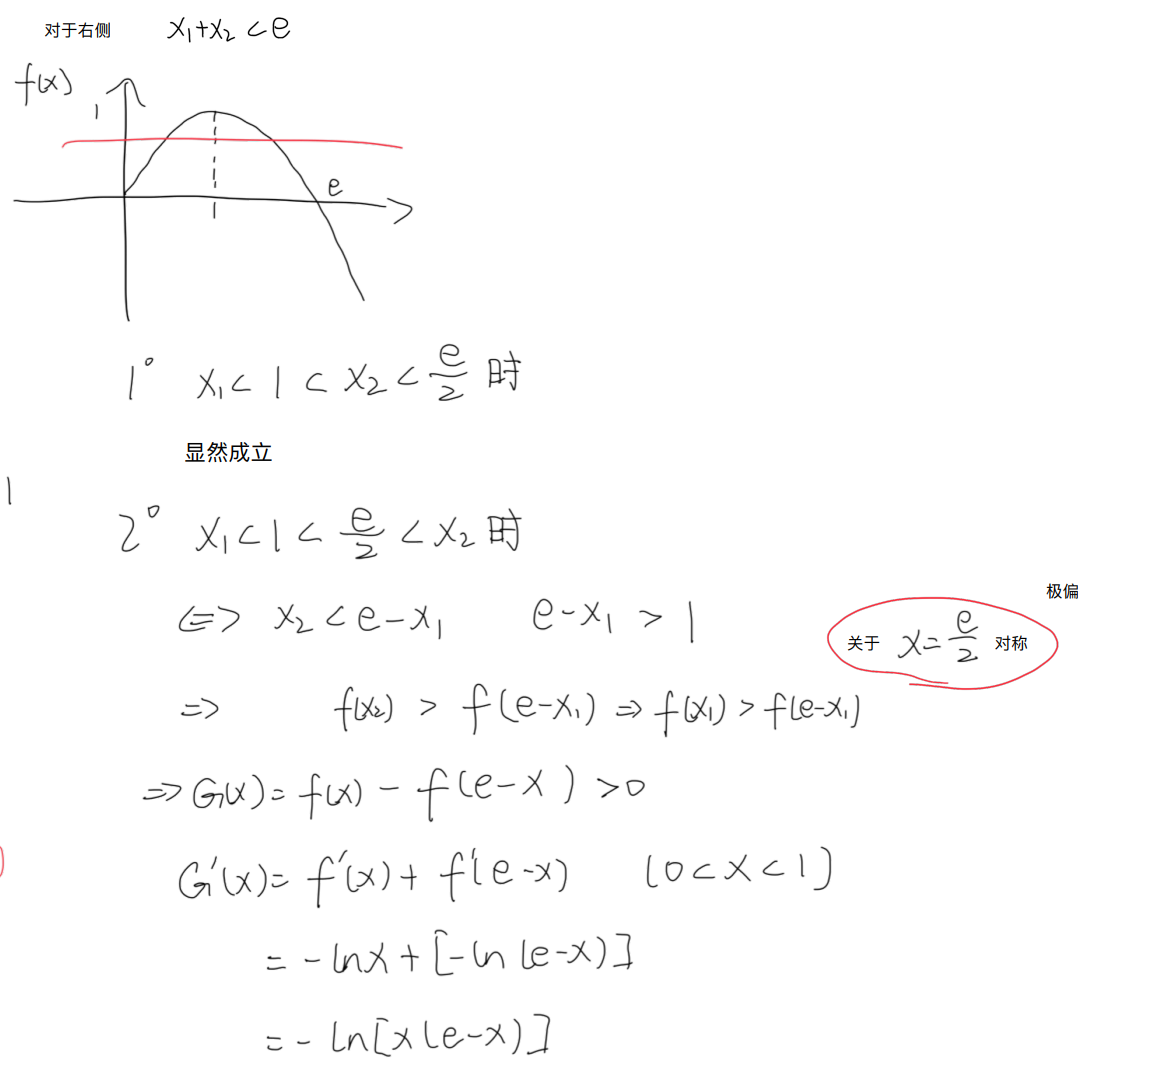 对于右侧 x₁+x₂<e
f(x)
1
e
1
1° x₁<1<x₂<e/2 时
显然成立
1
2° x₁<1<e/2<x₂ 时
<=> x₂<e-x₁ e-x₁>1
极偏
关于 x=e/2 对称
=> f(x₂) > f(e-x₁) => f(x₁)>f(e-x₁)
=> G(x)= f(x) - f(e-x) >0
G'(x)= f'(x)+ f'(e-x) (0<x<1)
= -lnx+[-ln(e-x)]
= -ln[x(e-x)]